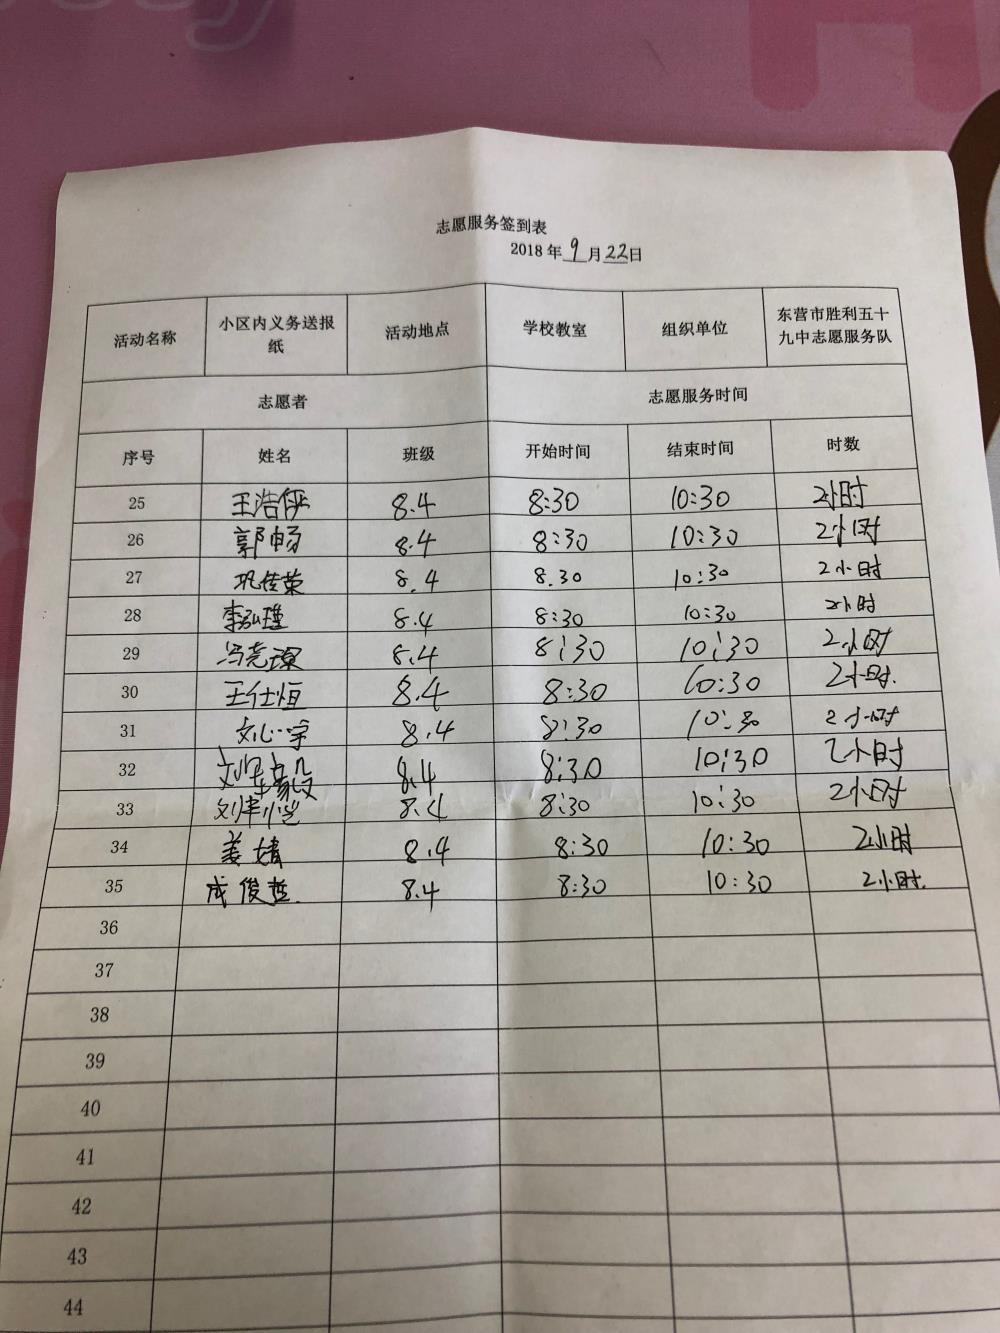 志愿服务签到表
2018 年 9 月 22 日
活动名称 小区内义务送报纸 活动地点 学校教室 组织单位 东营市胜利五十九中志愿服务队
志愿者 志愿服务时间
序号 姓名 班级 开始时间 结束时间 时数
25 王浩 8.4 8:30 10:30 2小时
26 郭畅 8.4 8:30 10:30 2小时
27 巩佳荣 8.4 8.30 10:30 2小时
28 李弘瑾 8.4 8:30 10:30 2小时
29 冯尧琛 8.4 8:30 10:30 2小时
30 王仕恒 8.4 8:30 10:30 2小时.
31 文心宇 8.4 8:30 10:30 2小时
32 8.4 8:30 10:30 2小时
33 刘津恺 8.4 8:30 10:30 2小时
34 姜婧 8.4 8:30 10:30 2小时
35 成俊哲. 8.4 8:30 10:30 2小时.
36
37
38
39
40
41
42
43
44